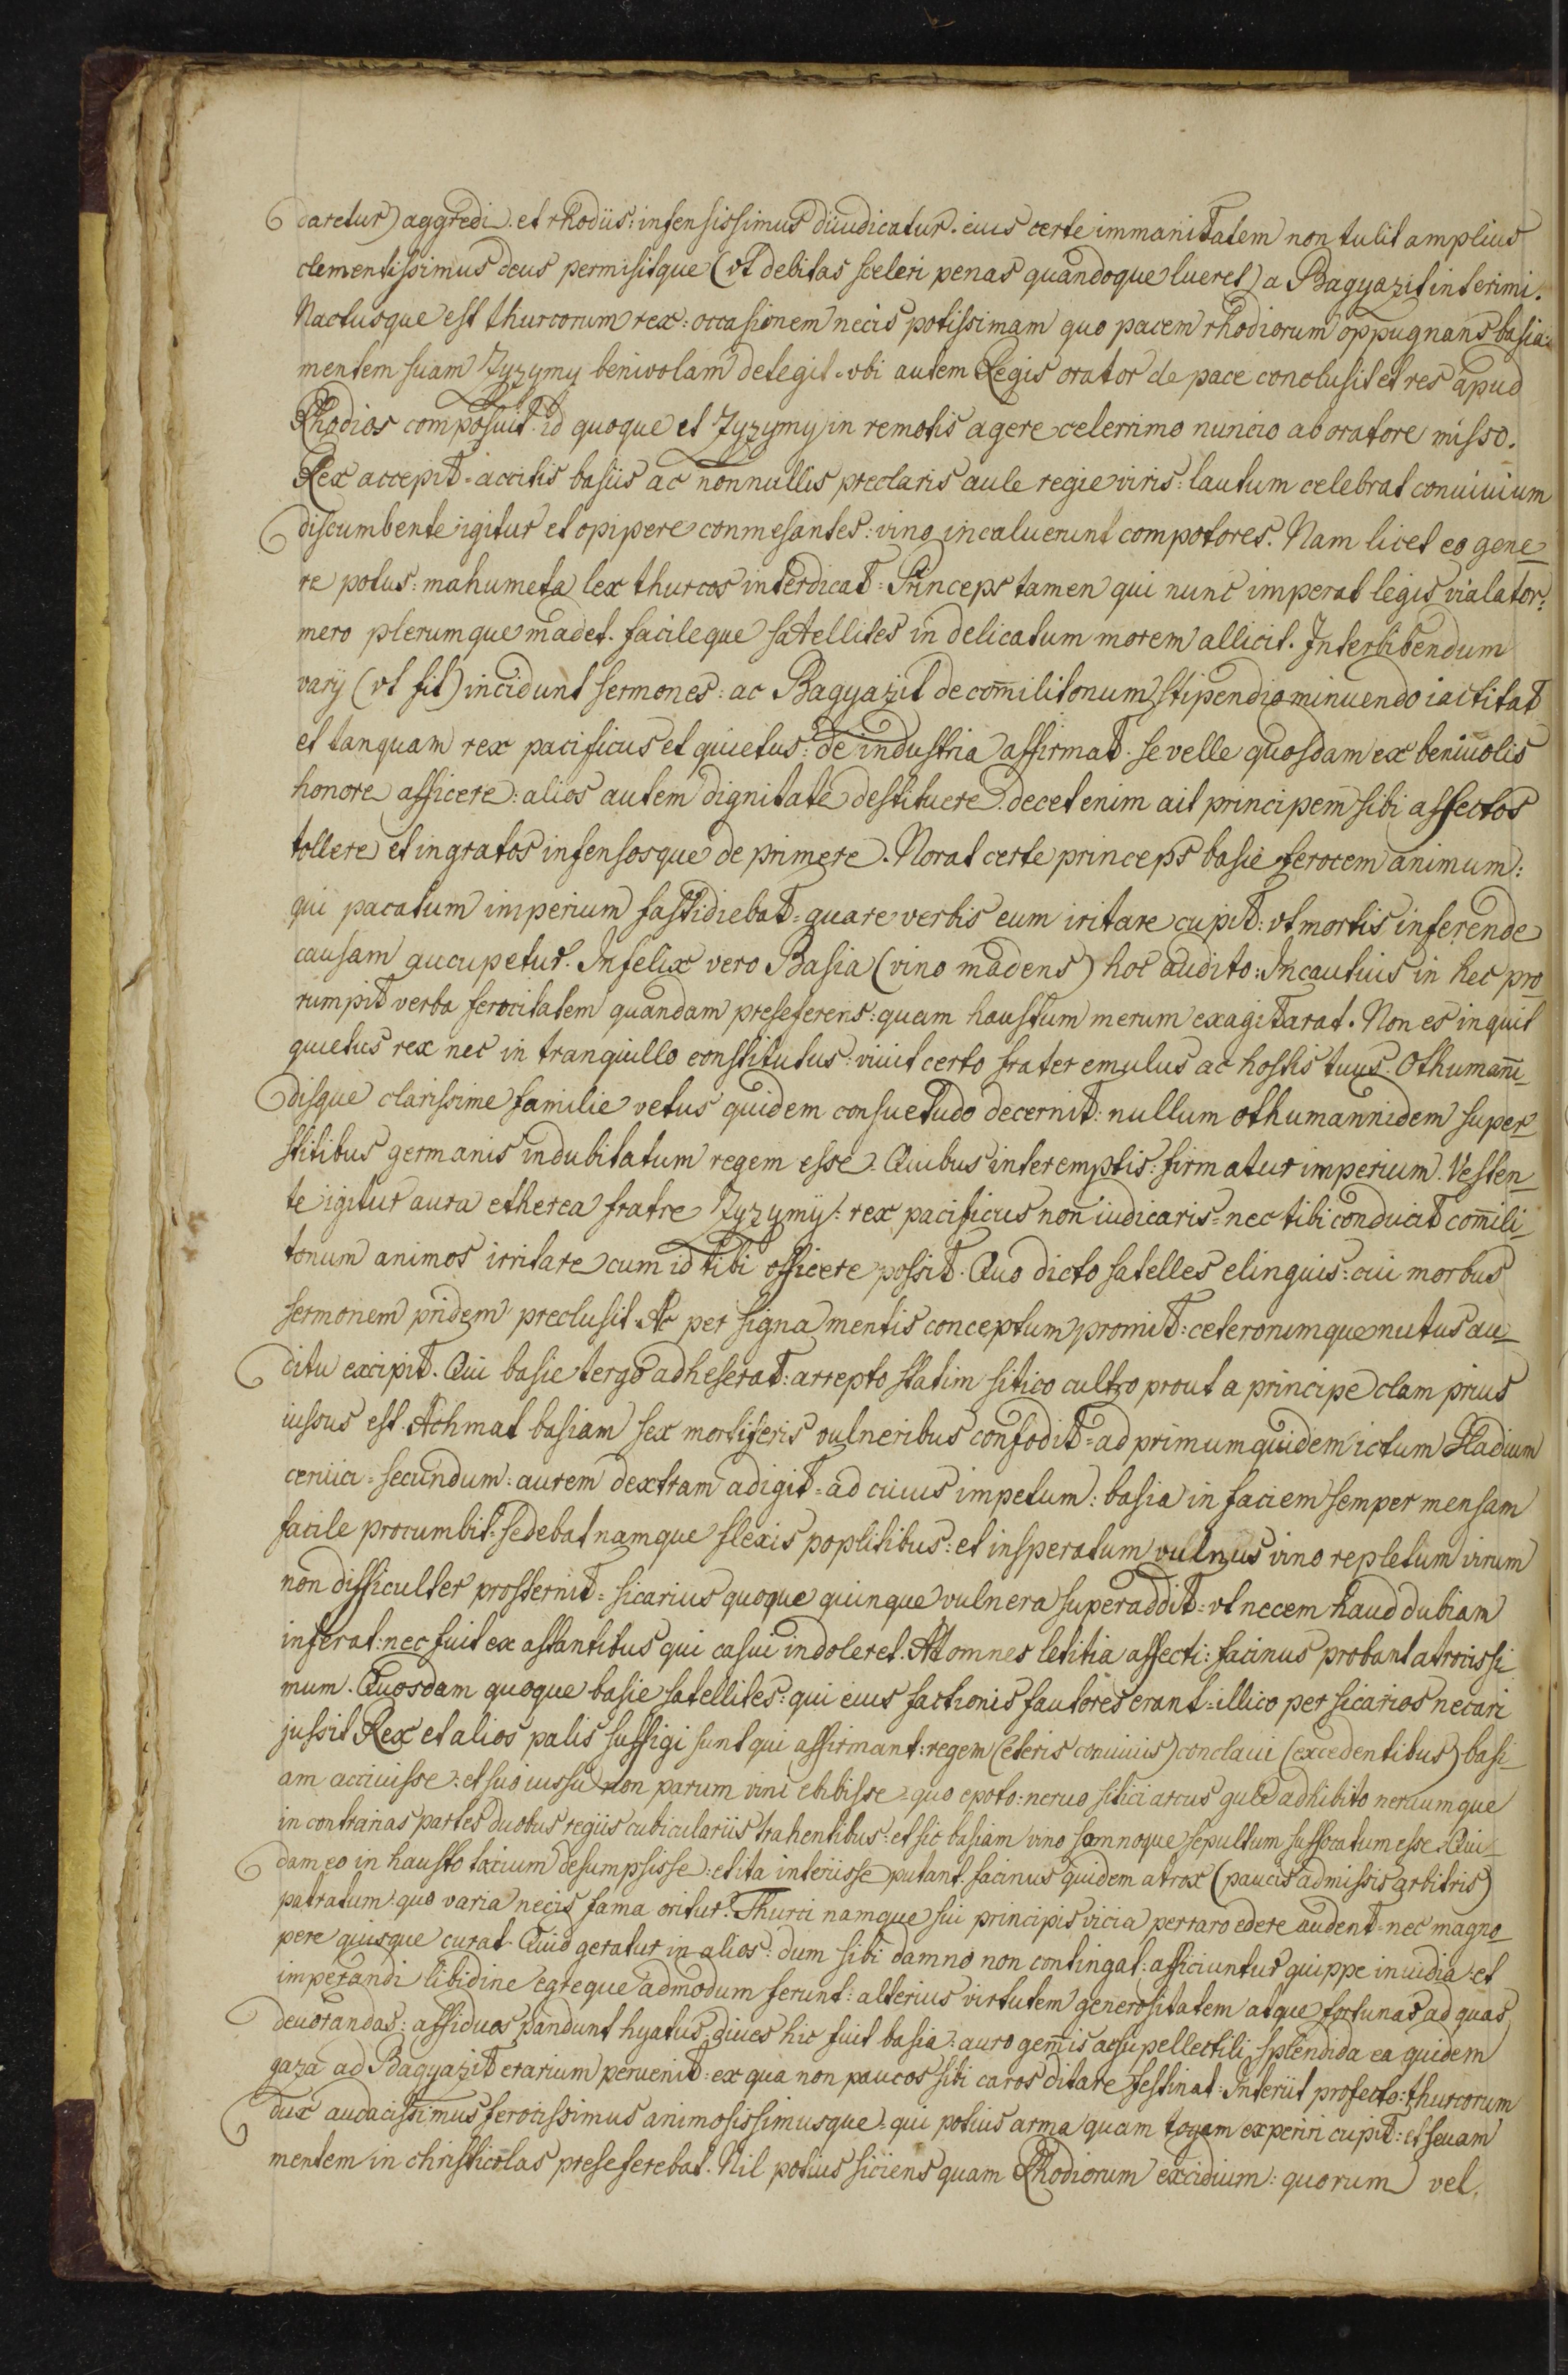 daretur) aggredi. et rhodiis: infensissimus diiudicatur. eius certe immanitatem non tulit amplius
clementissimus deus permisitque (vt debitas sceleri penas quandoque lueret) a Bagyazit interimi.
Nactusque est thurcorum rex: occasionem necis potissimam quo pacem rhodiorum oppugnans basia:
mentem suam Zyzymy benivolam detegit. vbi autem Regis orator de pace conclusit et res apud
Rhodios composuit. id quoque et Zyzymy in remotis agere celerrimo nuncio ab oratore misso.
Rex accepit. accitis basiis ac nonnullis preclaris aule regie viris: lautum celebrat conuiuium
discumbente igitur et opipere conmesantes: vino incaluerunt compotores. Nam licet eo gene-
re potus: mahumeta lex thurcos interdicat: Princeps tamen qui nunc imperat legis vialator:
mero plerumque madet. facileque satellites in delicatum morem allicit. Interbibendum
varij (vt fit) incidunt sermones: ac Bagyazit de com̄ilitonum stipendio minuendo iactitat
et tanquam rex pacificus et quietus: de industria affirmat. se velle quosdam ex beniuolis
honore afficere: alios autem dignitate destituere. decet enim ait principem sibi affectos
tollere et ingratos infensosque deprimere. Norat certe princeps basie ferocem animum:
qui pacatum imperium fastidiebat: quare verbis eum iritare cupit: vt mortis inferende
causam aucupetur. Infelix vero Basia (vino madens) hoc audito: Incautius in hec pro
rumpit verba ferocitatem quandam preseferens: quam haustum merum exagitarat. Non es inquit
quietus rex nec in tranquillo constitutus: viuit certo frater emulus ac hostis tuus. Othumañi-
disque clarissime familie vetus quidem consuetudo decernit: nullum othumannidem super-
stitibus germanis indubitatum regem esse. Quibus interemptis: firmatur imperium. Vesten-
te igitur aura etherea fratre Zyzymÿ: rex pacificus non iudicaris: nec tibi conducit com̄ili-
tonum animos irritare cum id tibi officere possit. Quo dicto satelles elinguis: cui morbus
sermonem pridem preclusit. Ac per signa mentis conceptum promit: ceterorumque nutus au-
ditu excipit. Qui basie tergo adheserat: arrepto statim sitico cultro prout a principe clam prius
iussus est. Achmat basiam sex mortiferis vulneribus confodit: ad primum quidem ictum Hadium
ceruici: secundum: aurem dextram adigit: ad cuius impetum: basia in faciem semper mensam
facile procumbit: sedebat namque flexis poplitibus: et insperatum vulnus vino repletum virum
non difficulter prosternit: sicarius quoque quinque vulnera superaddit: vt necem haud dubiam
inferat: nec fuit ex astantibus qui casui indoleret. At omnes letitia affecti: facinus probant atrocissi
mum. Quosdam quoque basie satellites: qui eius factionis fautores erant: illico per sicarios necari
jussit Rex et alios palis suffigi sunt qui affirmant: regem (ceteris conuiuis) conclaui (excedentibus) basi-
am acciuisse: et suo iussu non parum vini ebibisse: quo epoto: neruo sitici arcus gule adhibito neruumque
in contrarias partes duobus regiis cubiculariis trahentibus: et sic basiam vino somnoque sepultum suffocatum esse. Qui-
dam eo in hausto toxicum desumpsisse: et ita interiisse putant. facinus quidem atrox (paucis admissis arbitris)
patratum: quo varia necis fama oritur. Thurci namque sui principis vicia perraro edere audent: nec magno-
pere quisque curat. Quid geratur in alios: dum sibi damno non contingat: afficiuntur quippe inuidia: et
imperandi libidine egreque admodum ferunt: alterius virtutem generositatem atque fortunas ad quas
deuorandas: assiduos pandunt hyatus: diues hic fuit basia: auro gem̄is ac supellectili splendida ea quidem
gaza ad Bagyazit erarium peruenit: ex qua non paucos sibi caros ditare festinat: Interiit profecto: thurcorum
dux audacissimus ferocissimus animosissimusque: qui potius arma quam togam experiri cupit: et seuam
mentem in christicolas preseferebat. Nil potius siciens quam Rhodiorum excidium: quorum vel.